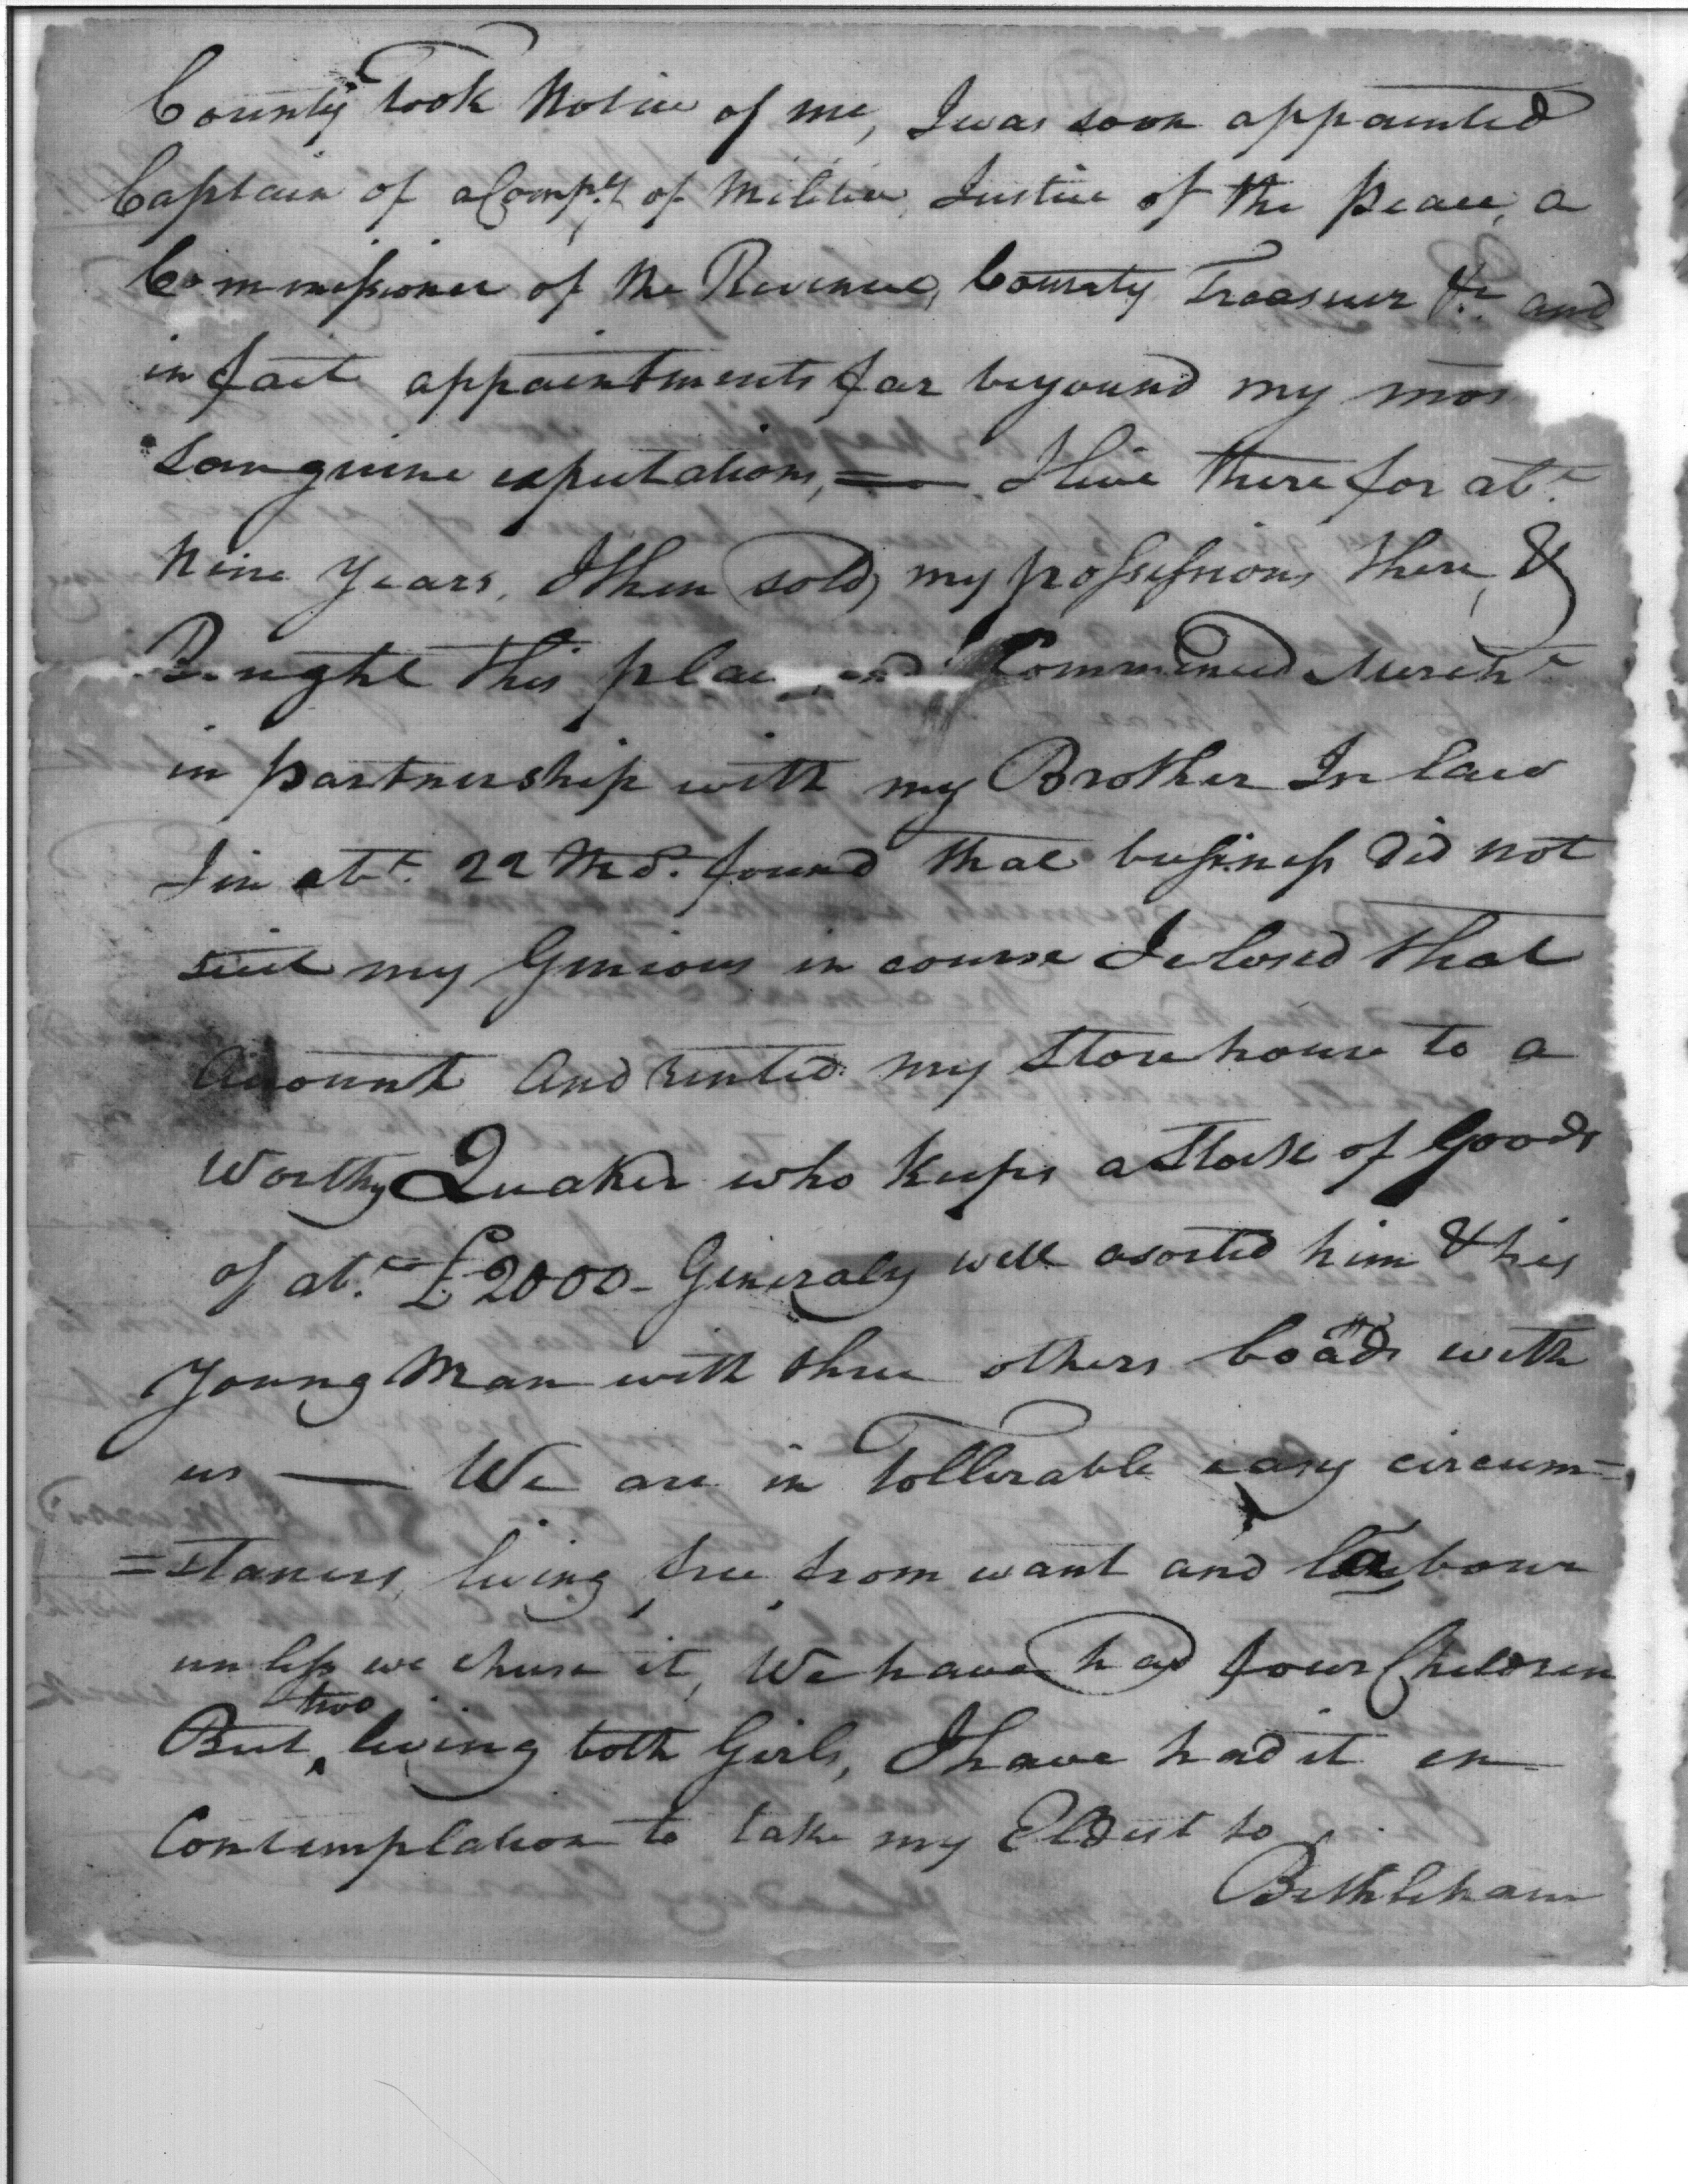 County Took Notice of me, I was soon appointed
Captain of a Compy of Militia, Justice of the peace, a
Commissioner of the Revenue, County Treasurer &c and
in fact appointments far beyound my mos
sanguine expectations, = I live there for abt
Nine Years, I then sold my possessions there, &
Bought this place and Commenced Mercht
in partnership with my Brother In law
I in abt 22 Mos. found that business did not
suit my Genious in course I closed that
Account And rented my Store house to a
Worthy Quaker who keeps a Stock of Goods
of abt £2000 - Generaly well asorted him & his
Young Man with three others boards with
us — We are in Tollerable easy circum=
=stances living free from want and labour
unless we chuse it, We have had four Children
But two living both Girls, I have had it in
Contemplation to take my Eldest to
Bethleham